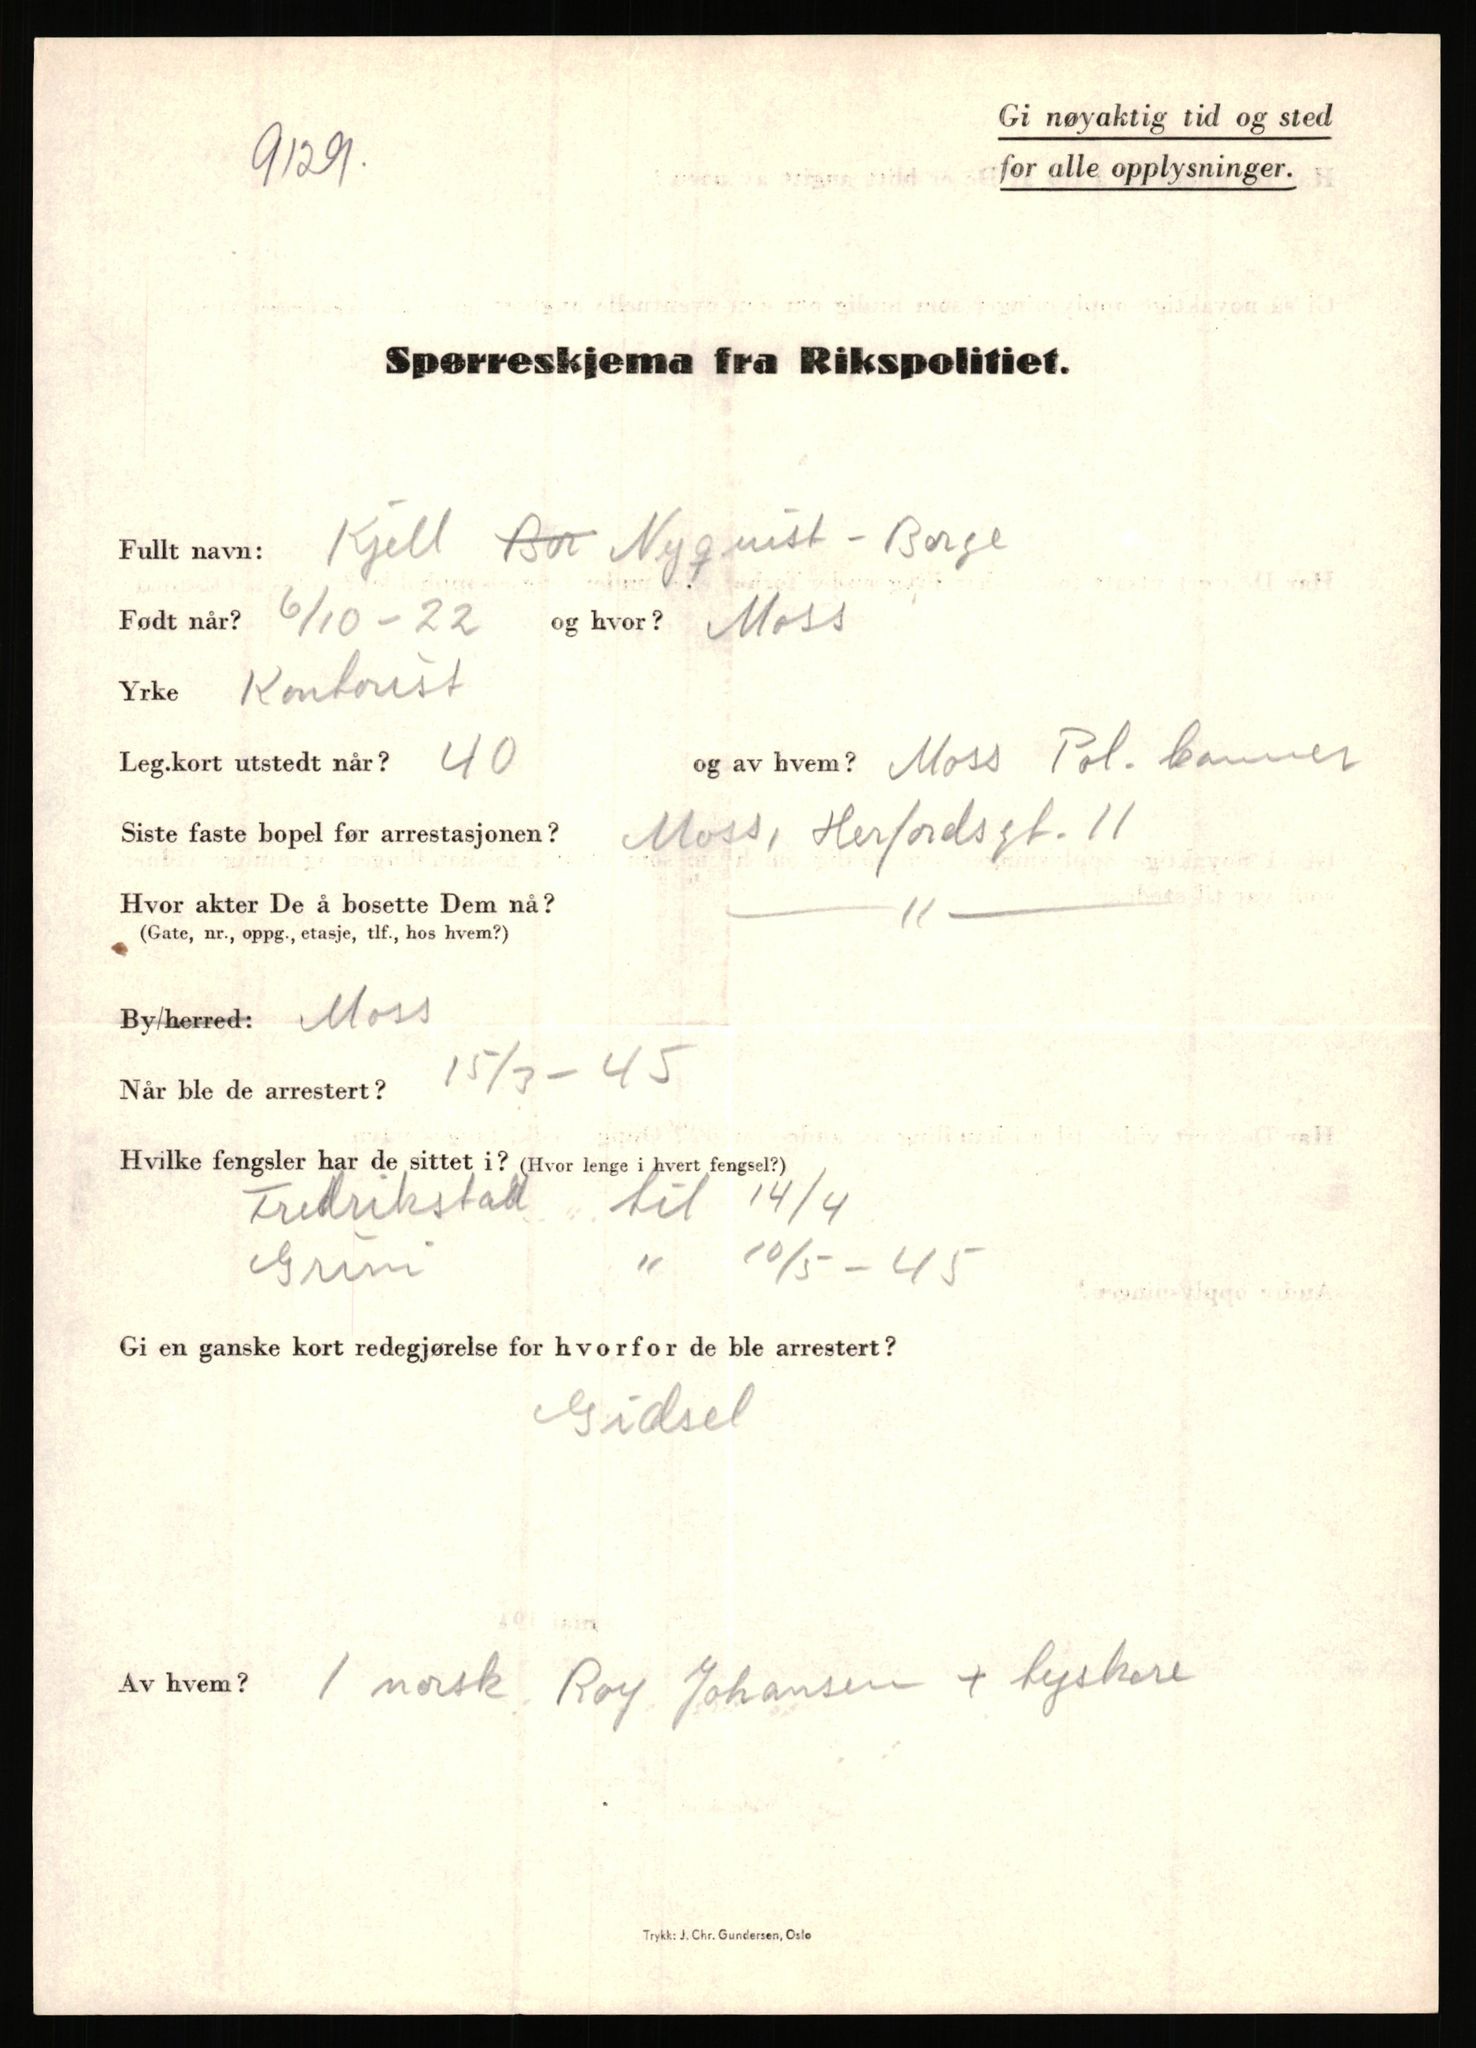 9129.
Gi nøyaktig tid og sted
for alle opplysninger.
Spørreskjema fra Rikspolitiet.
Fullt navn: Kjell Bor Nyquist - Borge
Født når? 6/10 - 22 og hvor? Moss
Yrke Kontorist
Leg.kort utstedt når? 40 og av hvem? Moss Pol. kammer
Siste faste bopel før arrestasjonen? Moss, Herfordsgt. 11
Hvor akter De å bosette Dem nå? — 11 —
(Gate, nr., oppg., etasje, tlf., hos hvem?)
By/herred: Moss
Når ble de arrestert? 15/3 - 45
Hvilke fengsler har de sittet i? (Hvor lenge i hvert fengsel?)
Fredrikstad til 14/4
Grini " 10/5 - 45
Gi en ganske kort redegjørelse for hvorfor de ble arrestert?
Gidsel
Av hvem? 1 norsk Roy Johansen + tyskere
Trykk: J. Chr. Gundersen, Oslo